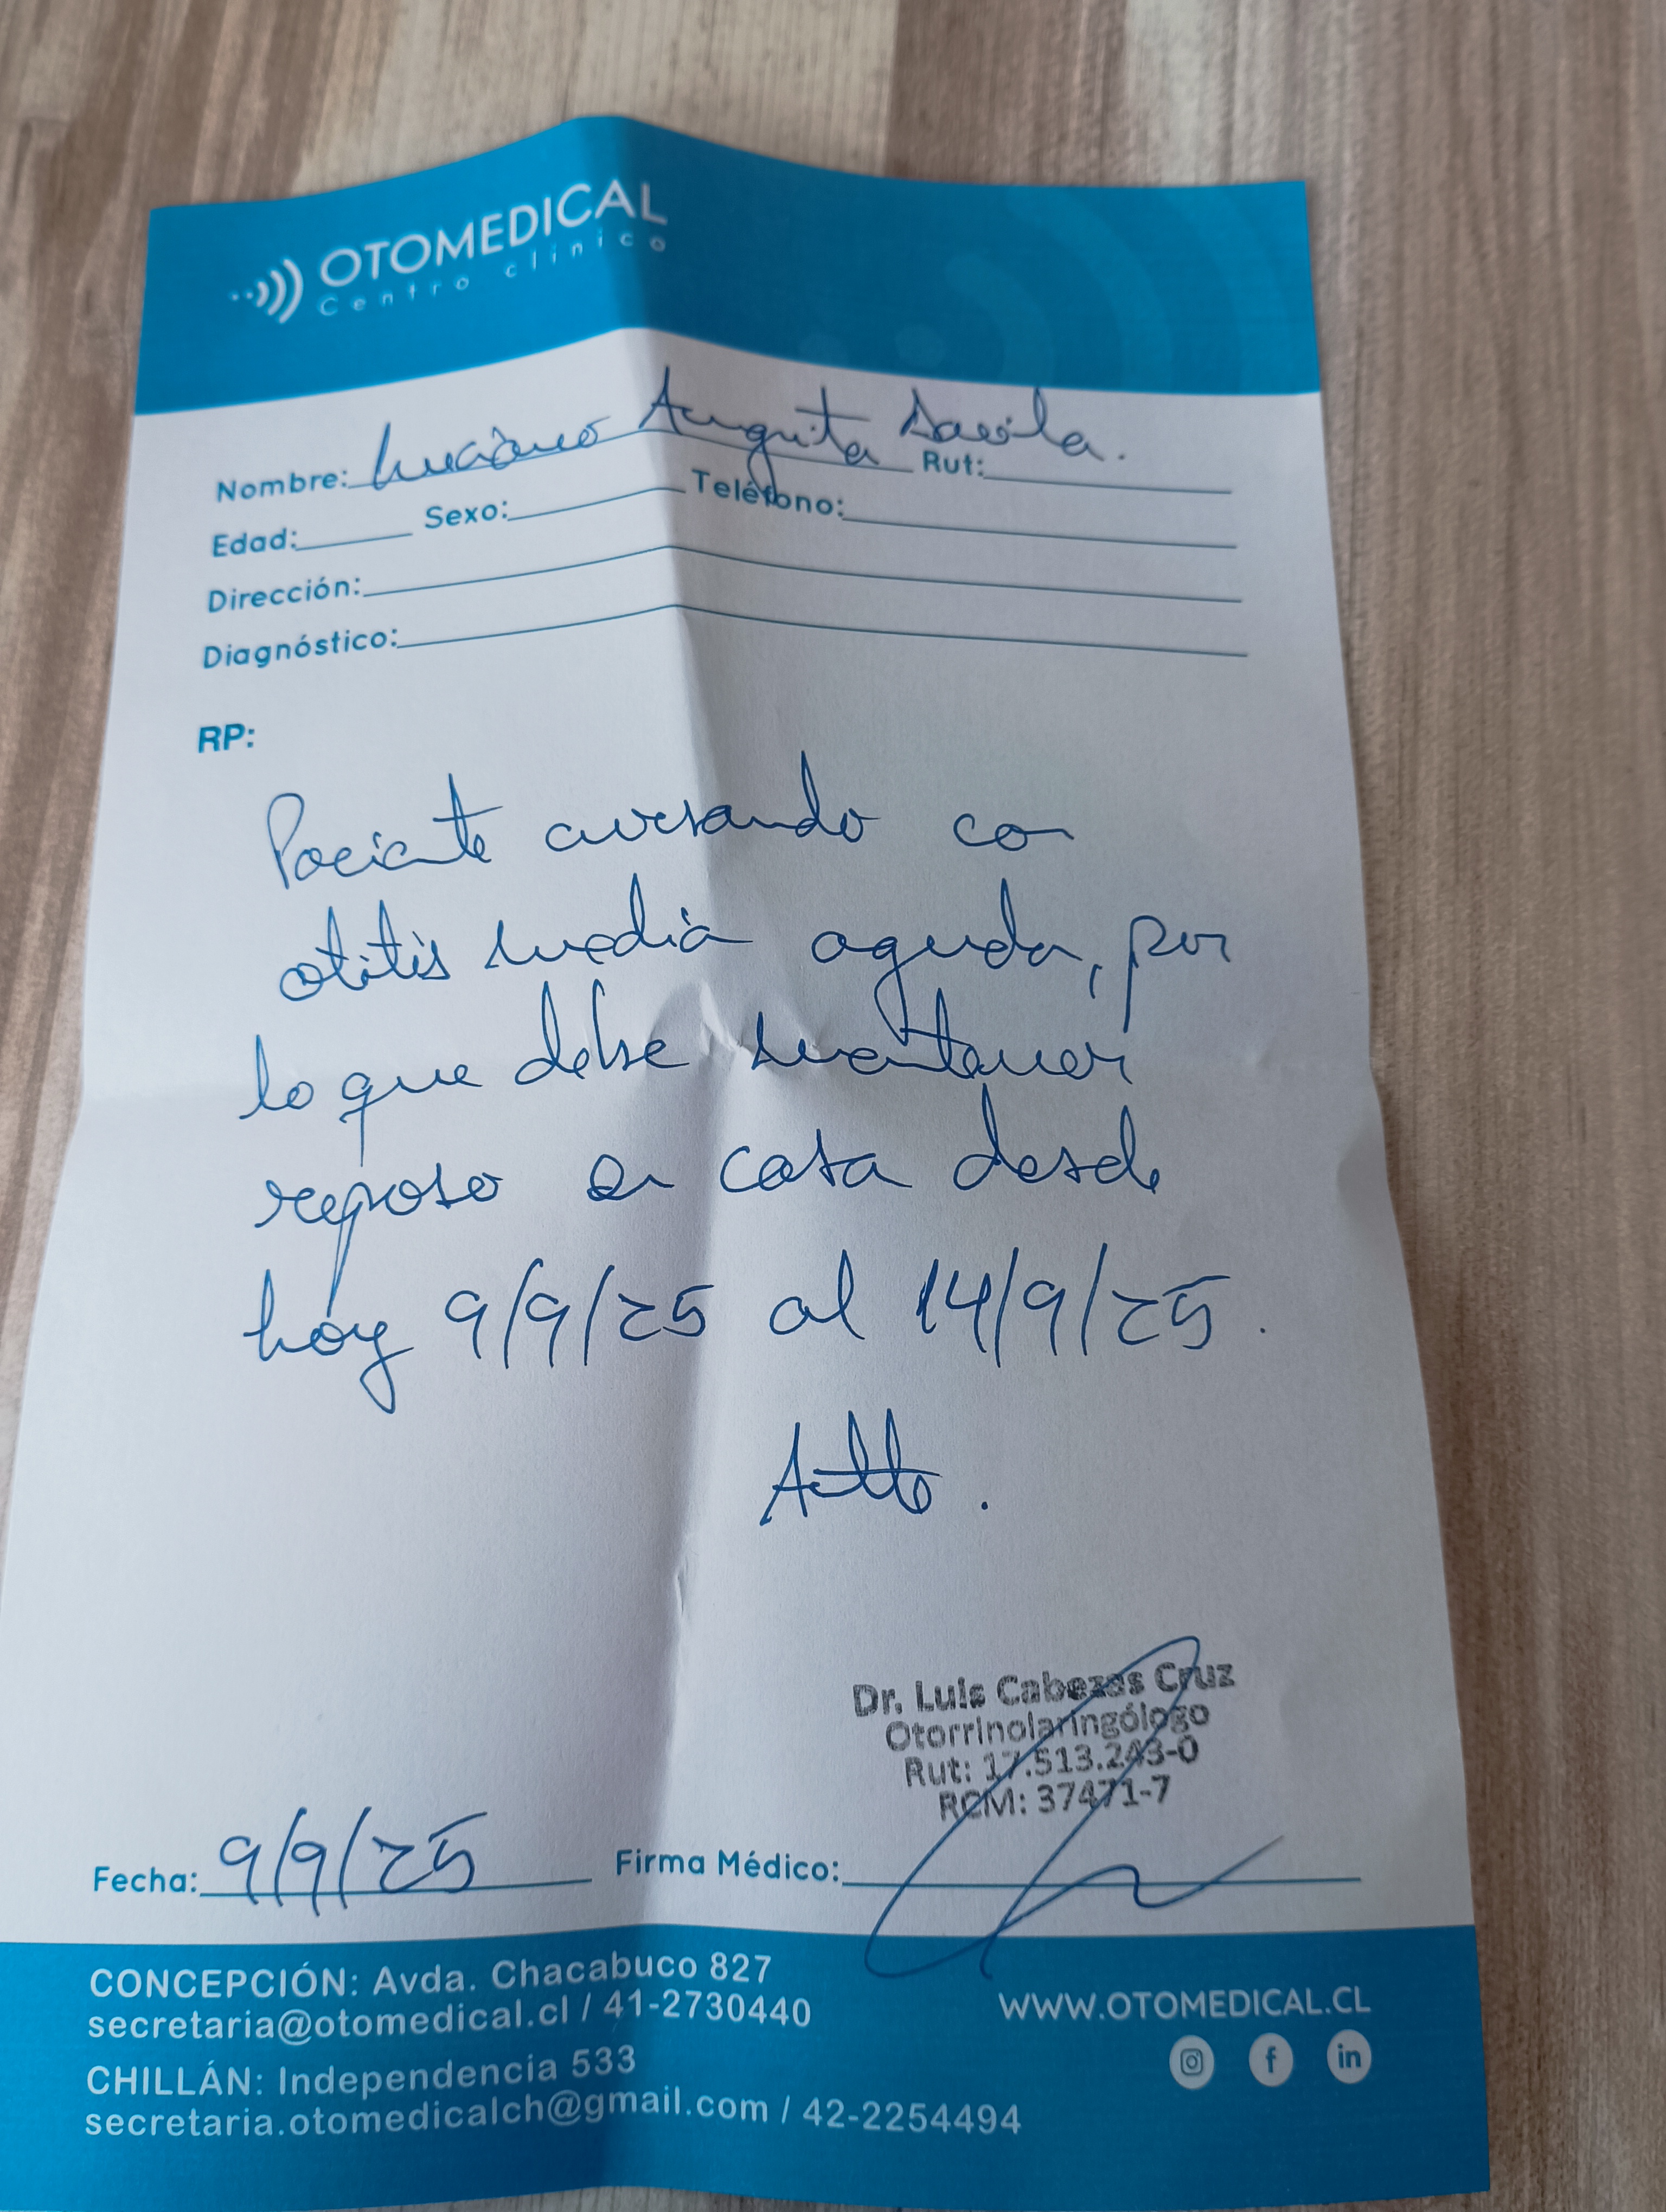 OTOMEDICAL
Centro clínico
Nombre: Luciano Anguita Davila. Rut:
Edad: Sexo: Teléfono:
Dirección:
Diagnóstico:
RP:
Paciente cursando con
otitis media aguda, por
lo que debe mantener
reposo en casa desde
hoy 9/9/25 al 14/9/25.
Atte.
Dr. Luis Cabezas Cruz
Otorrinolaringólogo
Rut: 17.513.243-0
RCM: 37471-7
Fecha: 9/9/25 Firma Médico:
CONCEPCIÓN: Avda. Chacabuco 827
secretaria@otomedical.cl / 41-2730440
WWW.OTOMEDICAL.CL
CHILLÁN: Independencia 533
secretaria.otomedicalch@gmail.com / 42-2254494